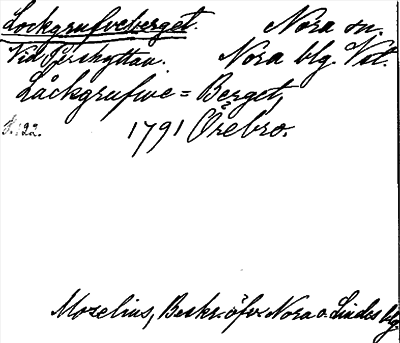 Lockgrufveberget. Nora sn.
Vid Pershyttan. Nora blg. Vst.
Låckgrufwe=Berget,
S. 122. 1791 Örebro.
Mozelius, Beskr. öfver Nora o. Lindes blg.